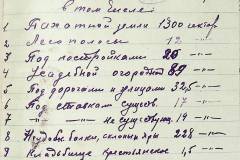 в том числе:
1 Пахотной земли 1300 гектар
2 Лесополосы 12 -"-
3 Под постройками 20 -"-
4 Усадебной огородн 89 -"-
5 Под дорогами и улицами 32,5 -"-
6 Под ставком сущесв. 17 -"-
7 -"- -"- не существующ. 19 -"-
8 Неудобн. балки, склоны, яры 228 -"-
9 Кладбище крестьянское 1,5 -"-